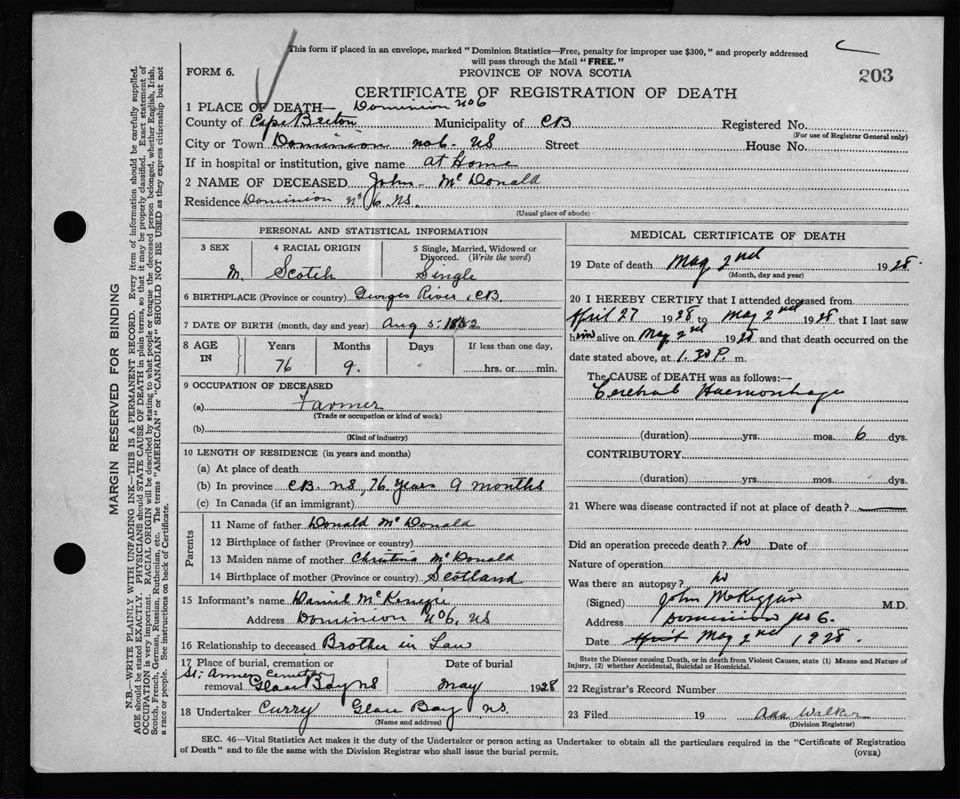 This form if placed in an envelope, marked "Dominion Statistics—Free, penalty for improper use $300," and properly addressed
will pass through the Mail "FREE."
FORM 6.
PROVINCE OF NOVA SCOTIA
203
CERTIFICATE OF REGISTRATION OF DEATH
1 PLACE OF DEATH— Dominion No 6
County of Cape Breton Municipality of CB Registered No.
(For use of Registrar General only)
City or Town Dominion No 6. NS Street House No.
If in hospital or institution, give name at Home
2 NAME OF DECEASED John McDonald
Residence Dominion No 6 NS.
(Usual place of abode)
PERSONAL AND STATISTICAL INFORMATION
3 SEX 4 RACIAL ORIGIN 5 Single, Married, Widowed or Divorced. (Write the word)
M. Scotch Single
6 BIRTHPLACE (Province or country) Georges River, CB.
7 DATE OF BIRTH (month, day and year) Aug 5-
8 AGE IN Years Months Days If less than one day,
76 9. - hrs. or min.
9 OCCUPATION OF DECEASED
(a) Farmer
(Trade or occupation or kind of work)
(b)
(Kind of industry)
10 LENGTH OF RESIDENCE (in years and months)
(a) At place of death
(b) In province CB. NS, 76 Years 9 months
(c) In Canada (if an immigrant)
Parents
11 Name of father Donald McDonald
12 Birthplace of father (Province or country)
13 Maiden name of mother Christina McDonald
14 Birthplace of mother (Province or country) Scotland
15 Informant's name Daniel McKenzie
Address Dominion No 6, NS
16 Relationship to deceased Brother in Law
17 Place of burial, cremation or removal Date of burial
St. Annes Cemetery
Glace Bay NS May 1928
18 Undertaker Curry Glace Bay NS.
(Name and address)
MEDICAL CERTIFICATE OF DEATH
19 Date of death May 2nd 1928.
(Month, day and year)
20 I HEREBY CERTIFY that I attended deceased from
April 27 1928 to May 2nd 1928 that I last saw
him alive on May 2nd 1928 and that death occurred on the
date stated above, at 1.30 P. m.
The CAUSE of DEATH was as follows:—
Cerebral Haemorrhage
(duration) yrs. mos. 6 dys.
CONTRIBUTORY
(duration) yrs. mos. dys.
21 Where was disease contracted if not at place of death?
Did an operation precede death? No Date of
Nature of operation
Was there an autopsy? No
(Signed) John McKiggan M.D.
Address Dominion No 6.
Date April May 2nd 1928.
State the Disease causing Death, or in death from Violent Causes, state (1) Means and Nature of
Injury, (2) whether Accidental, Suicidal or Homicidal.
22 Registrar's Record Number
23 Filed 19 Ada Walker
(Division Registrar)
SEC. 46—Vital Statistics Act makes it the duty of the Undertaker or person acting as Undertaker to obtain all the particulars required in the "Certificate of Registration
of Death" and to file the same with the Division Registrar who shall issue the burial permit.
(OVER)
MARGIN RESERVED FOR BINDING
N.B.—WRITE PLAINLY WITH UNFADING INK—THIS IS A PERMANENT RECORD. Every item of information should be carefully supplied.
AGE should be stated EXACTLY. PHYSICIANS should STATE CAUSE OF DEATH in plain terms, so that it may be properly classified. Exact statement of
OCCUPATION is very important. RACIAL ORIGIN will be described by stating to what people or tongue the deceased person belonged, whether English, Irish,
Scotch, French, German, Russian, Ruthenian, etc. The terms "AMERICAN" or "CANADIAN" SHOULD NOT BE USED as they express citizenship but not
a race or people. See instructions on back of Certificate.